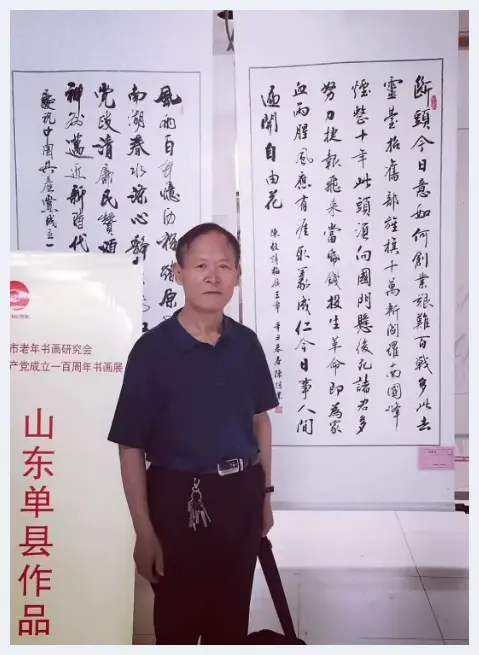 断頭今日意如何創業艱難百戰多此去
靈臺招舊部旌旗十萬斬閻羅南國烽
煙整十年此頭須向國門懸後死諸君多
努力捷報飛來當紙錢投生革命即為家
血雨腥風應有涯取義成仁今日事人間
遍開自由花
陳毅詩梅嶺三章 辛丑春
風雨百年憶
南湖春水滌心
黨政清廉民贊頌
神州邁近新時代
慶祝中國共產黨成立一
市老年书画研究会
产党成立一百周年书画展
山东单县作品